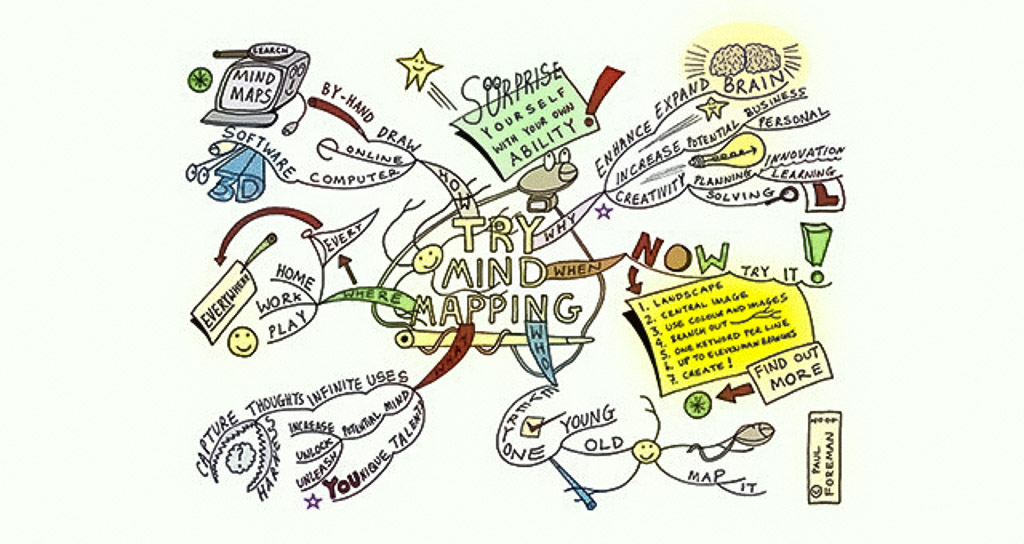 TRY
MIND
MAPPING
HOW
DRAW
BY-HAND
ONLINE
COMPUTER
SEARCH
MIND
MAPS
SOFTWARE
3D
SURPRISE
YOURSELF
WITH YOUR OWN
ABILITY
!
WHY
ENHANCE EXPAND BRAIN
INCREASE POTENTIAL BUSINESS
PERSONAL
CREATIVITY PLANNING INNOVATION
LEARNING
SOLVING
L
WHEN
NOW
TRY IT
!
1. LANDSCAPE
2. CENTRAL IMAGE
3. USE COLOUR AND IMAGES
4. BRANCH OUT
5. ONE KEYWORD PER LINE
6. UP TO ELEVEN MAIN BRANCHES
7. CREATE!
FIND OUT
MORE
WHO
EVERYONE
YOUNG
OLD
MAP IT
WHAT
INFINITE USES
THOUGHTS
CAPTURE
?
INCREASE POTENTIAL MIND
UNLOCK
UNLEASH
YOUNIQUE TALENTS
WHERE
EVERY
HOME
WORK
PLAY
EVERYWHERE
© PAUL
FOREMAN